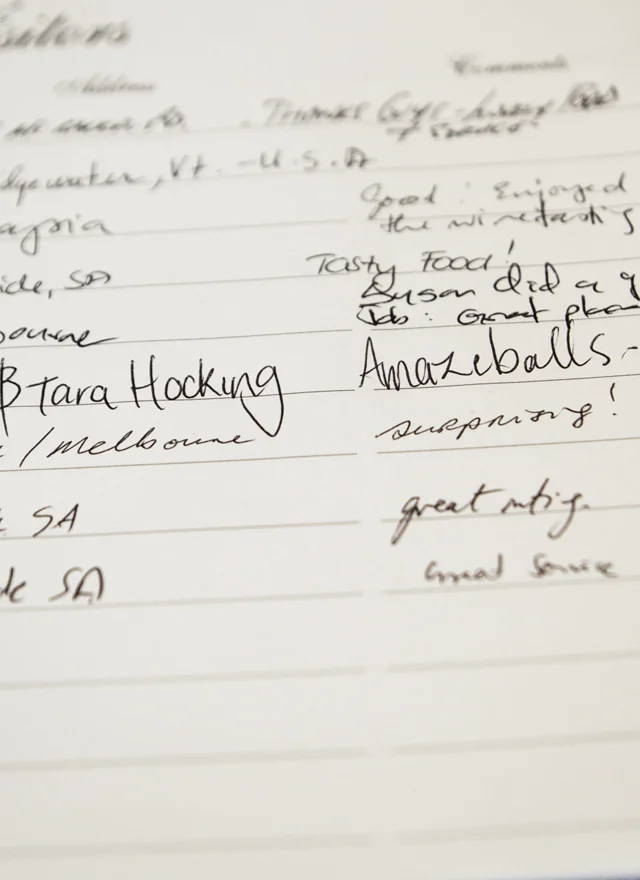 Visitors
Address Comments
Thanks
, Vt. - U.S.A
Good! Enjoyed
the winetasting
Tasty Food!
ide, SA
Susan did a g
Job: Great
bourne
B Tara Hocking Amazeballs -
/Melbourne surprising!
SA great
de SA Great Service